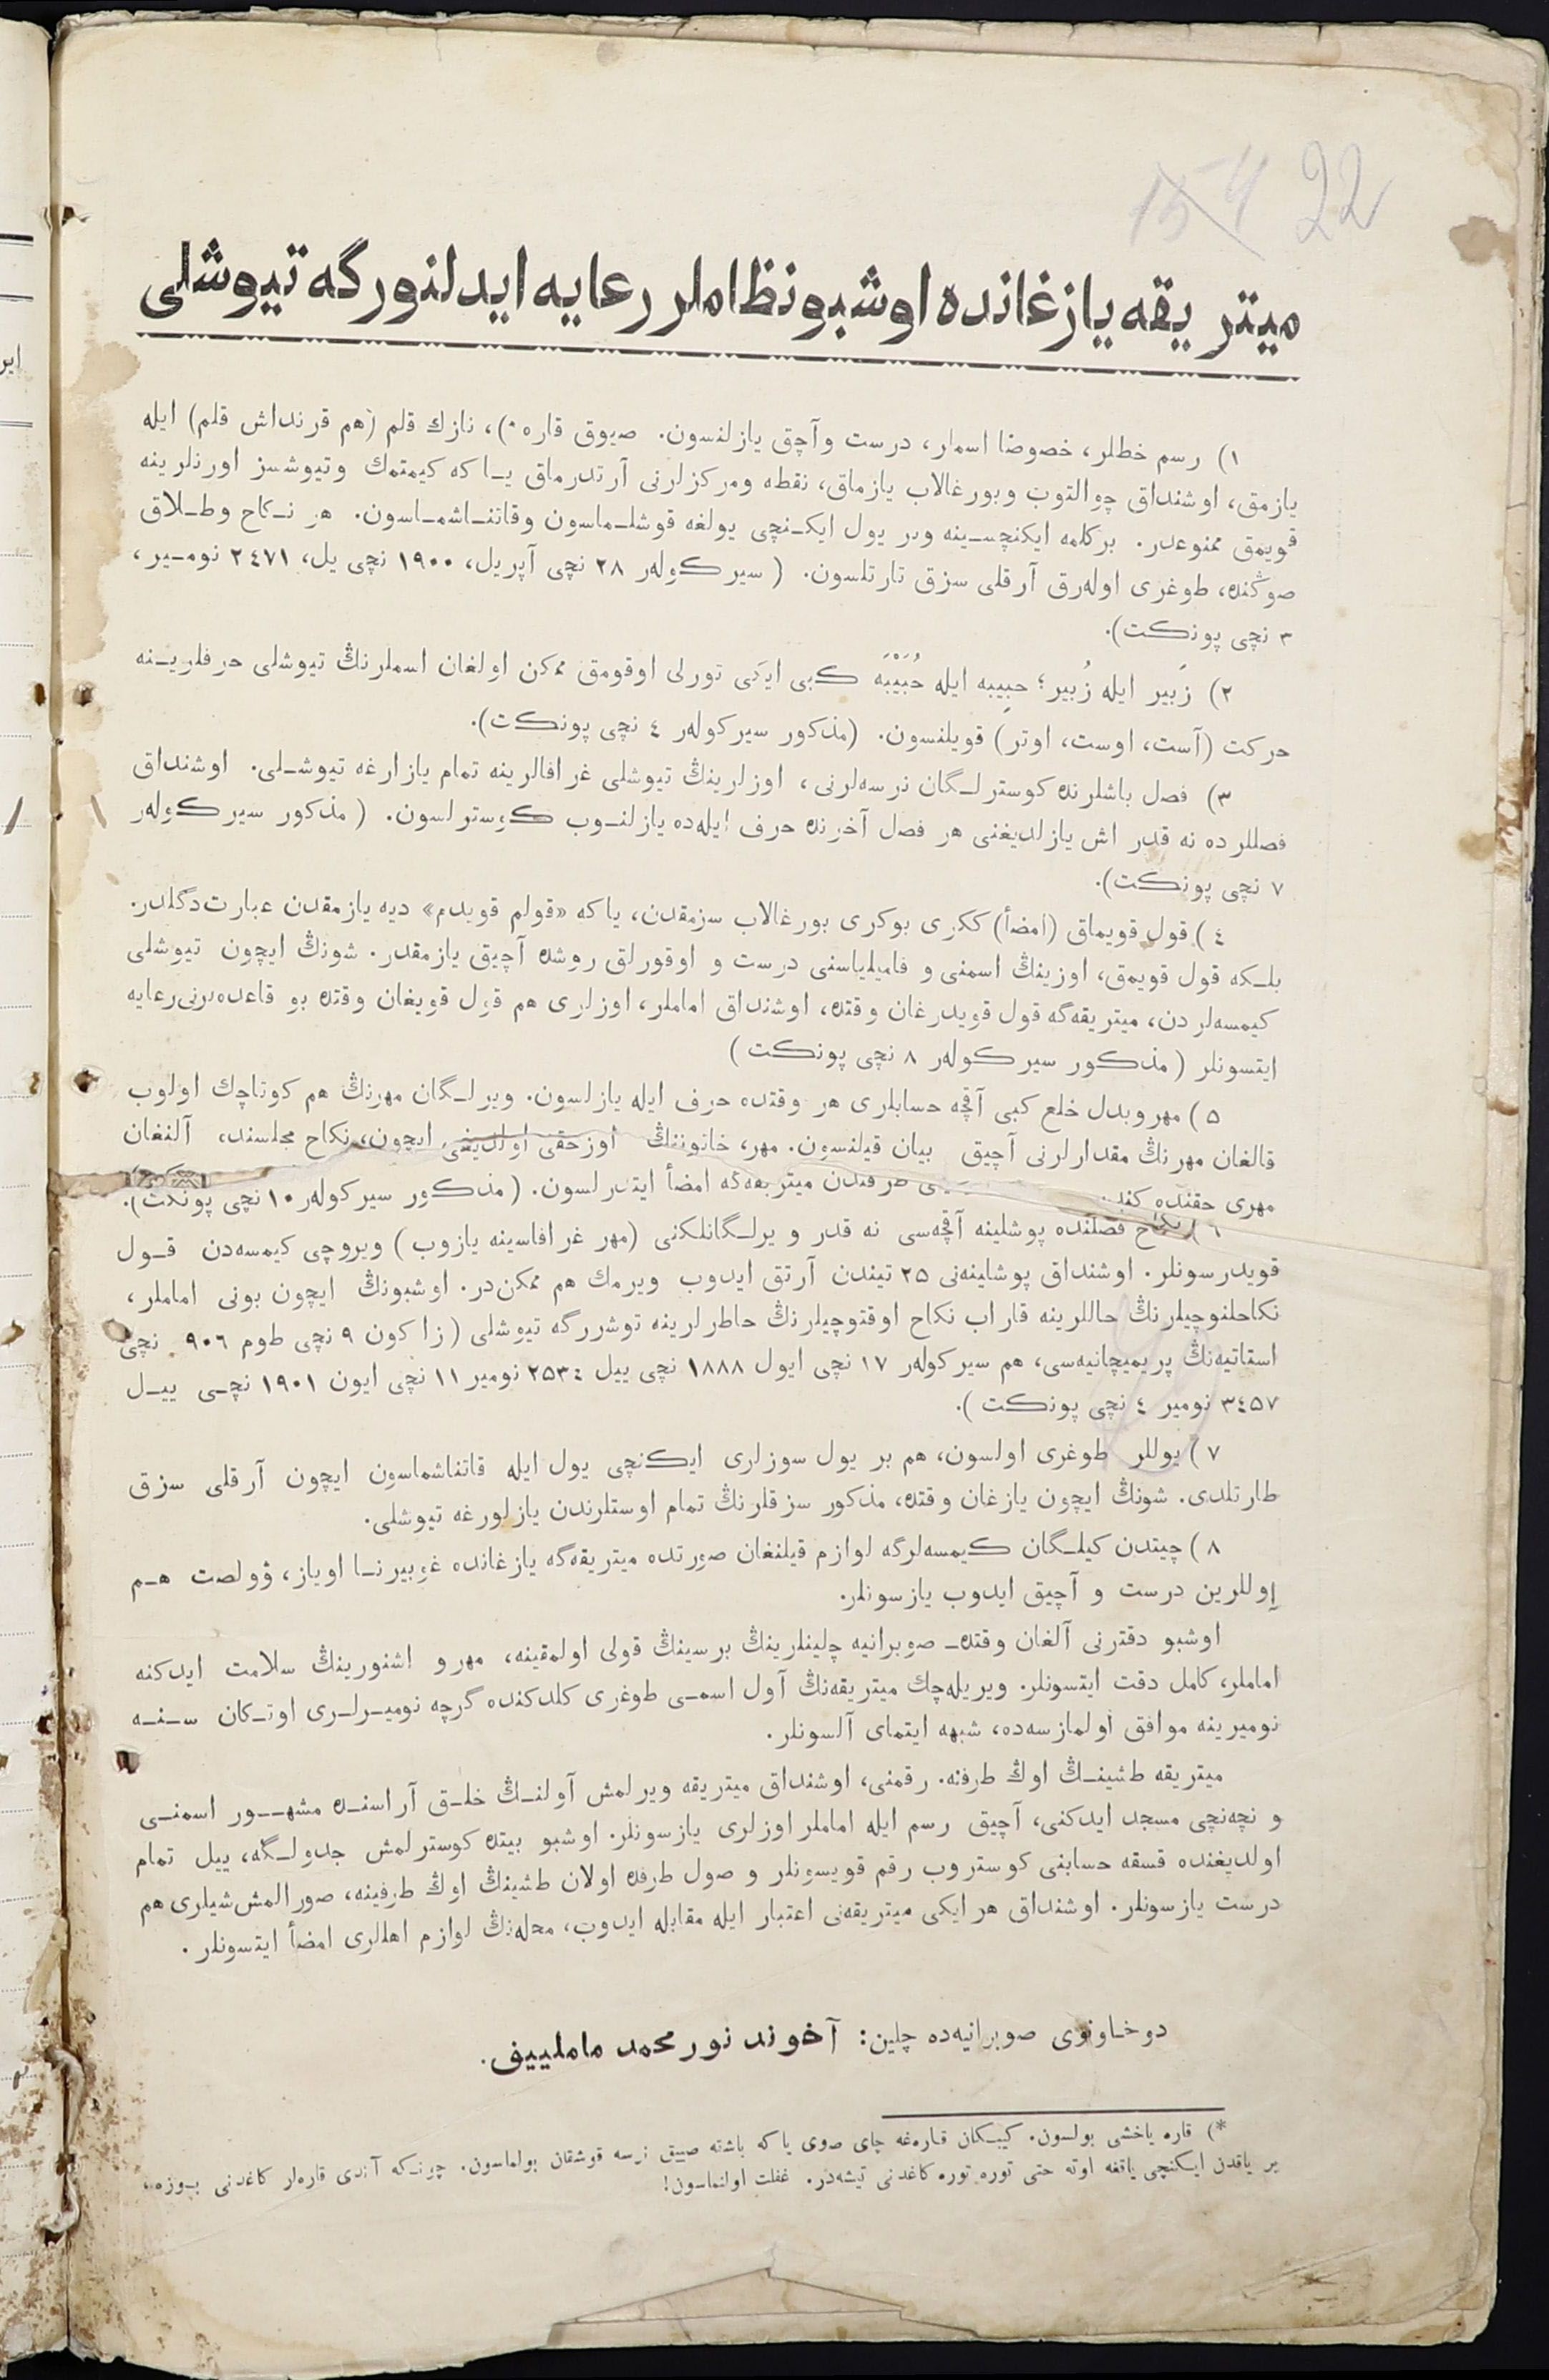 15 4 22
میتریقه یازغانده اوشبو نظاملر رعایه ایدلنورگه تیوشلی
١) رسم خطلر، خصوصًا اسملر، درست وآچق یازلنسون. صیوق قاره *)، نازك قلم (هم قرنداش قلم) ایله
یازمق، اوشنداق چوالتوب وبورغالاب یازماق، نقطه ومرکزلرنی آرتدرماق یـا که کیمتمك وتیوشسز اورنلرینه
قویمق ممنوعدر. برکلمه ایکنچسینه وبر یول ایکـنچی یولغه قوشلـماسون وقاتنـاشمـاسون. هر نـكاح وطـلاق
صوڭنده، طوغری اولەرق آرقلی سزق تارتلسون. (سیرکولەر ٢٨ نچی آپریل، ١٩٠٠ نچی یل، ٢٤٧١ نومـیر،
٣ نچی پونکت).
٢) زَبیر ایله زُبیر؛ حبِیبه ایله حُبَیْبَه کبی ایکی تورلی اوقومق ممکن اولغان اسملرنڭ تیوشلی حرفلریـنه
حرکت (آست، اوست، اوتر) قویلنسون. (مذکور سیرکولەر ٤ نچی پونکت).
٣) فصل باشلرنده کوسترلـگان نرسەلرنی، اوزلرینڭ تیوشلی غرافالرینه تمام یازارغه تیوشـلی. اوشنداق
فصللر ده نه قدر اش یازلدیغنی هر فصل آخرنده حرف ایلەده یازلنـوب کوسترلسون. (مذکور سیرکولەر
٧ نچی پونکت).
٤) قول قویماق (امضأ) ککری بوکری بورغالاب سزمقدن، یاکه «قولم قویدم» دیه یازمقدن عبارت دگلدر.
بلـکه قول قویمق، اوزینڭ اسمنی و فامیلیاسنی درست و اوقورلق روشده آچیق یازمقدر. شونڭ ایچون تیوشلی
کیمسەلر دن، میتریقەگه قول قویدرغان وقتده، اوشنداق اماملر، اوزلری هم قول قویغان وقتده بو قاعدەلرنی رعایه
ایتسونلر (مذکور سیرکولەر ٨ نچی پونکت)
٥) مهر وبدل خلع کبی آقچه حسابلری هر وقتده حرف ایله یازلسون. ویرلـگان مهرنڭ هم کوتاچك اولوب
قالغان مهرنڭ مقدارلرنی آچیق بیان قیلنسون. مهر، خاتوننڭ اوز حقی اولدیغی ایچون، نکاح مجلسنده، آلنغان
مهری حقنده طرفندن میتریقەگه امضأ ایتدرلسون. (مذکور سیرکولەر ١٠ نچی پونکت).
٦) نکاح فصلنده پوشلینه آقچەسی نه قدر ویرلـگانلکنی (مهر غرافاسینه یازوب) ویروچی کیمسەدن قـول
قویدرسونلر. اوشنداق پوشلینەنی ٢٥ تیندن آرتق ایدوب ویرمك هم ممکن در. اوشبونڭ ایچون بونی اماملر،
نکاحلنوچیلرنڭ حاللرینه قاراب نکاح اوقتوچیلرنڭ خاطرلرینه توشررگه تیوشلی (زاکون ٩ نچی طوم ٩٠٦ نچی
استاتیەنڭ پریمیچانیەسی، هم سیرکولەر ١٧ نچی ایول ١٨٨٨ نچی ییل ٢٥٣٤ نومیر ١١ نچی ایون ١٩٠١ نچـی ییـل
٣٤٥٧ نومیر ٤ نچی پونکت).
٧) یوللر طوغری اولسون، هم بر یول سوزلری ایکنچی یول ایله قاتناشماسون ایچون آرقلی سزق
طارتلدی. شونڭ ایچون یازغان وقتده، مذکور سزقلرنڭ تمام اوستلرندن یازلورغه تیوشلی.
٨) چیتدن کیلـگان کیمسەلرگه لوازم قیلنغان صورتده میتریقەگه یازغانده غوبیرنـا اویاز، ۋولصت هـم
اِوللرین درست و آچیق ایدوب یازسونلر.
اوشبو دفترنی آلغان وقتدهـ صوبرانیه چلینلرینڭ برسینڭ قولی اولمقینه، مهر و اشنورینڭ سلامت ایدکنه
اماملر، کامل دقت ایتسونلر. ویریلەچك میتریقەنڭ آول اسمـی طوغری کلدکنده گرچه نومیـرلـری اوتـکان سـنـه
نومیرینه موافق اولمازسەده، شبهه ایتمای آلسونلر.
میتریقه طشینـڭ اوڭ طرفنه. رقمنی، اوشنداق میتریقه ویرلمش آولنـڭ خلـق آراسنـده مشهـور اسمنـی
و نچەنچی مسجد ایدکنی، آچیق رسم ایله اماملر اوزلری یازسونلر. اوشبو بیتده کوسترلمش جدولـگه، ییل تمام
اولدیغنده قسقه حسابنی کوستروب رقم قویسونلر و صول طرفده اولان طشینڭ اوڭ طرفینه، صورالمش شیلری هم
درست یازسونلر. اوشنداق هر ایکی میتریقەنی اعتبار ایله مقابله ایدوب، محلەنڭ لوازم اهللری امضأ ایتسونلر.
دوخاونوی صوبرانیەده چلین: آخوند نورمحمد ماملییف.
*) قاره یاخشی بولسون. کیبـکان قارەغه چای صوی یاکه باشته صییق نرسه قوشقان بولماسون. چونـکه آندی قارەلر کاغدنی بـوزه،
بر یاقدن ایـکنچی یاقغه اوته حتی توره توره کاغدنی تیشەدر. غفلت اولنماسون!